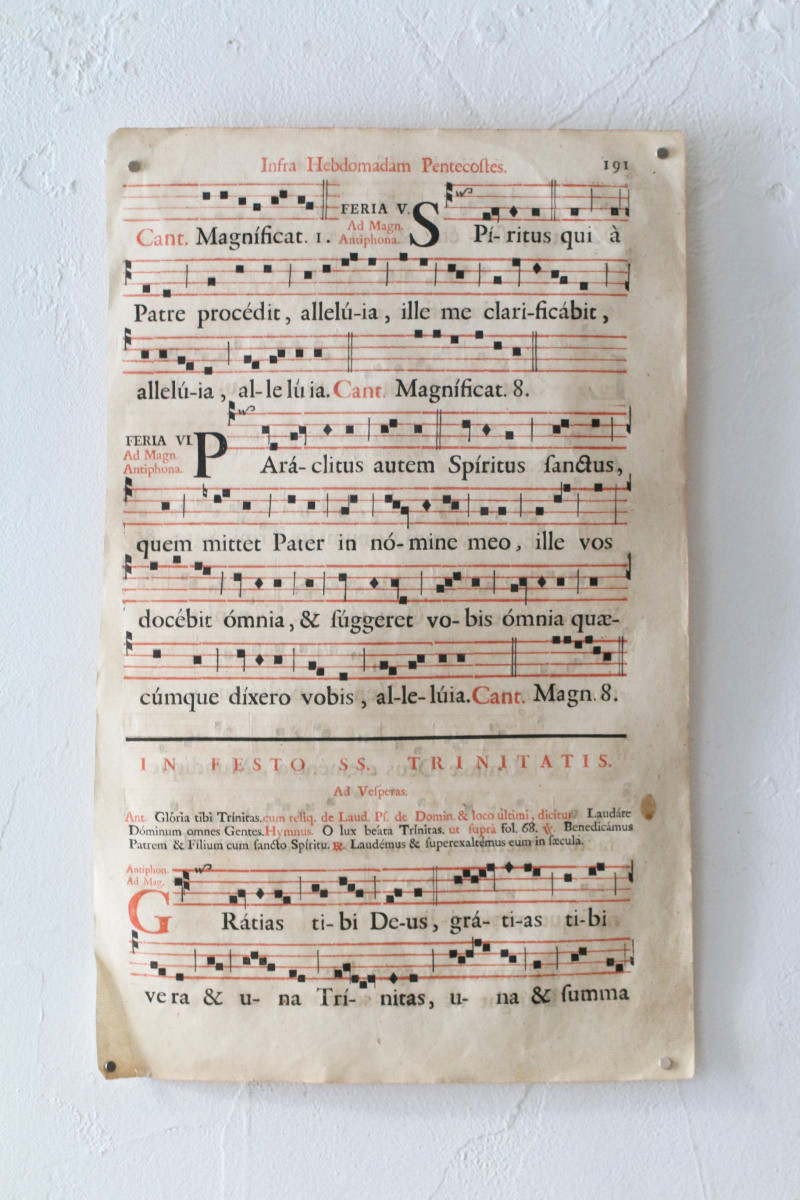 Infra Hebdomadam Pentecoſtes. 191
FERIA V.
Cant. Magníficat. 1. Ad Magn. Antiphona. SPí- ritus qui à
Patre procédit, allelú-ia, ille me clari-ficábit,
allelú-ia, al-le lú ia. Cant. Magníficat. 8.
FERIA VI.
Ad Magn.
Antiphona.
PArá- clitus autem Spíritus ſanctus,
quem mittet Pater in nó-mine meo, ille vos
docébit ómnia, & ſúggeret vo- bis ómnia quæ-
cúmque díxero vobis, al-le-lúia. Cant. Magn. 8.
IN FESTO SS. TRINITATIS.
Ad Veſperas.
Ant. Glória tibi Trínitas. cum reliq. de Laud. Pſ. de Domin. & loco ultimi, dicitur Laudáte
Dóminum omnes Gentes. Hymnus. O lux beáta Trínitas. ut ſuprà fol. 68. ℣. Benedicámus
Patrem & Fílium cum ſancto Spíritu. ℟. Laudémus & ſuperexaltémus eum in ſæcula.
Antiphon.
Ad Mag.
GRátias ti-bi De-us, grá- ti-as ti-bi
vera & u- na Trí- nitas, u- na & ſumma